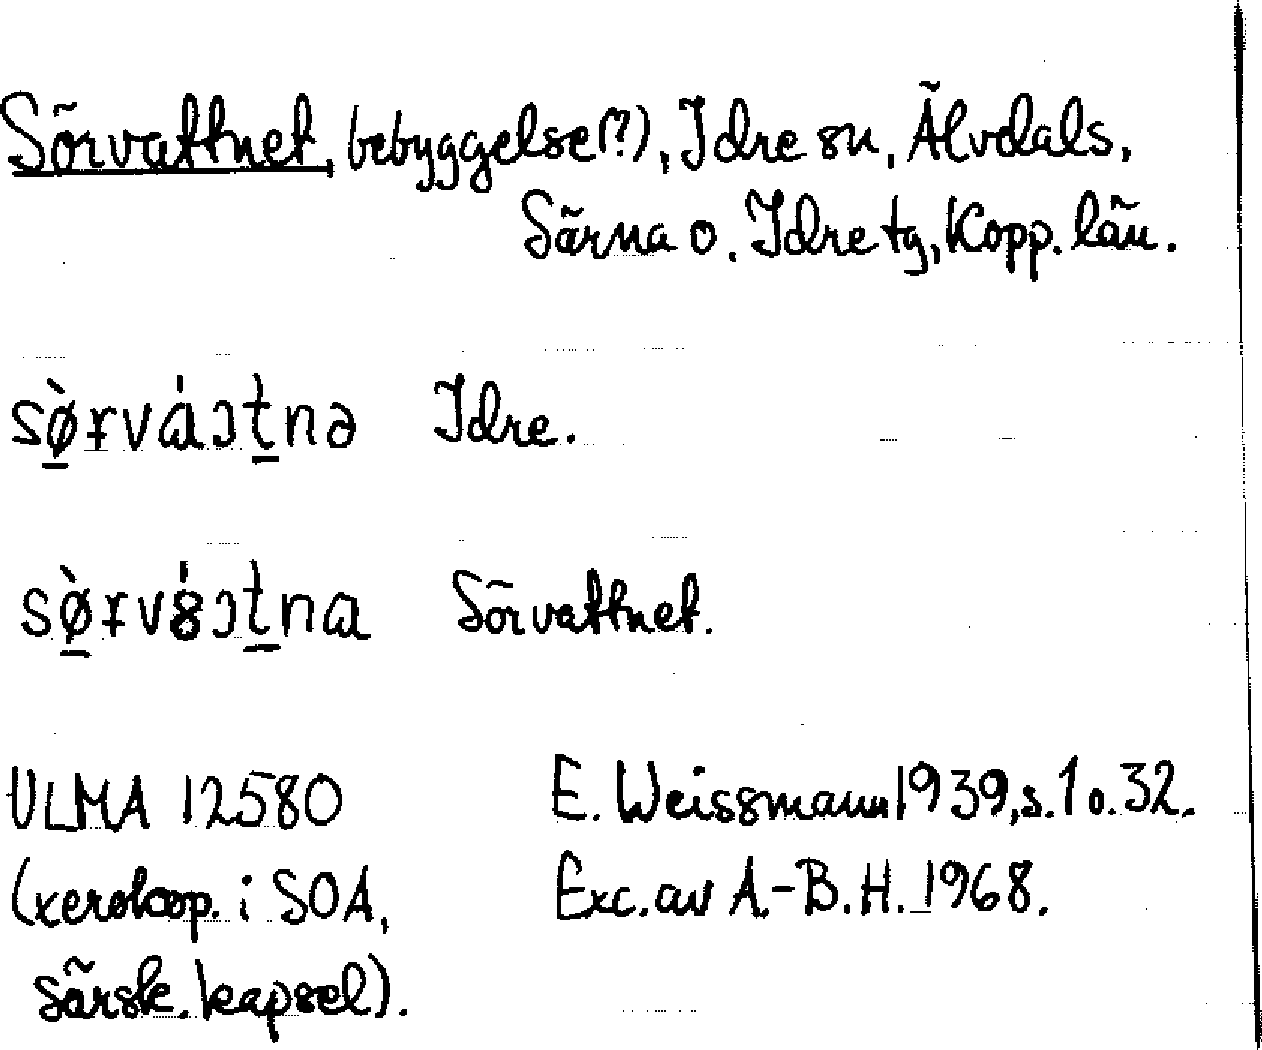 Sörvattnet, bebyggelse(?), Idre sn, Älvdals,
Särna o. Idre tg, Kopp. län.
sø̀rvátnə Idre.
sø̀rv8́tna Sörvattnet.
ULMA 12580 E. Weissmann 1939, s. 1 o. 32.
(xerokop. i SOA, Exc. av A.-B. H. 1968.
särsk. kapsel).